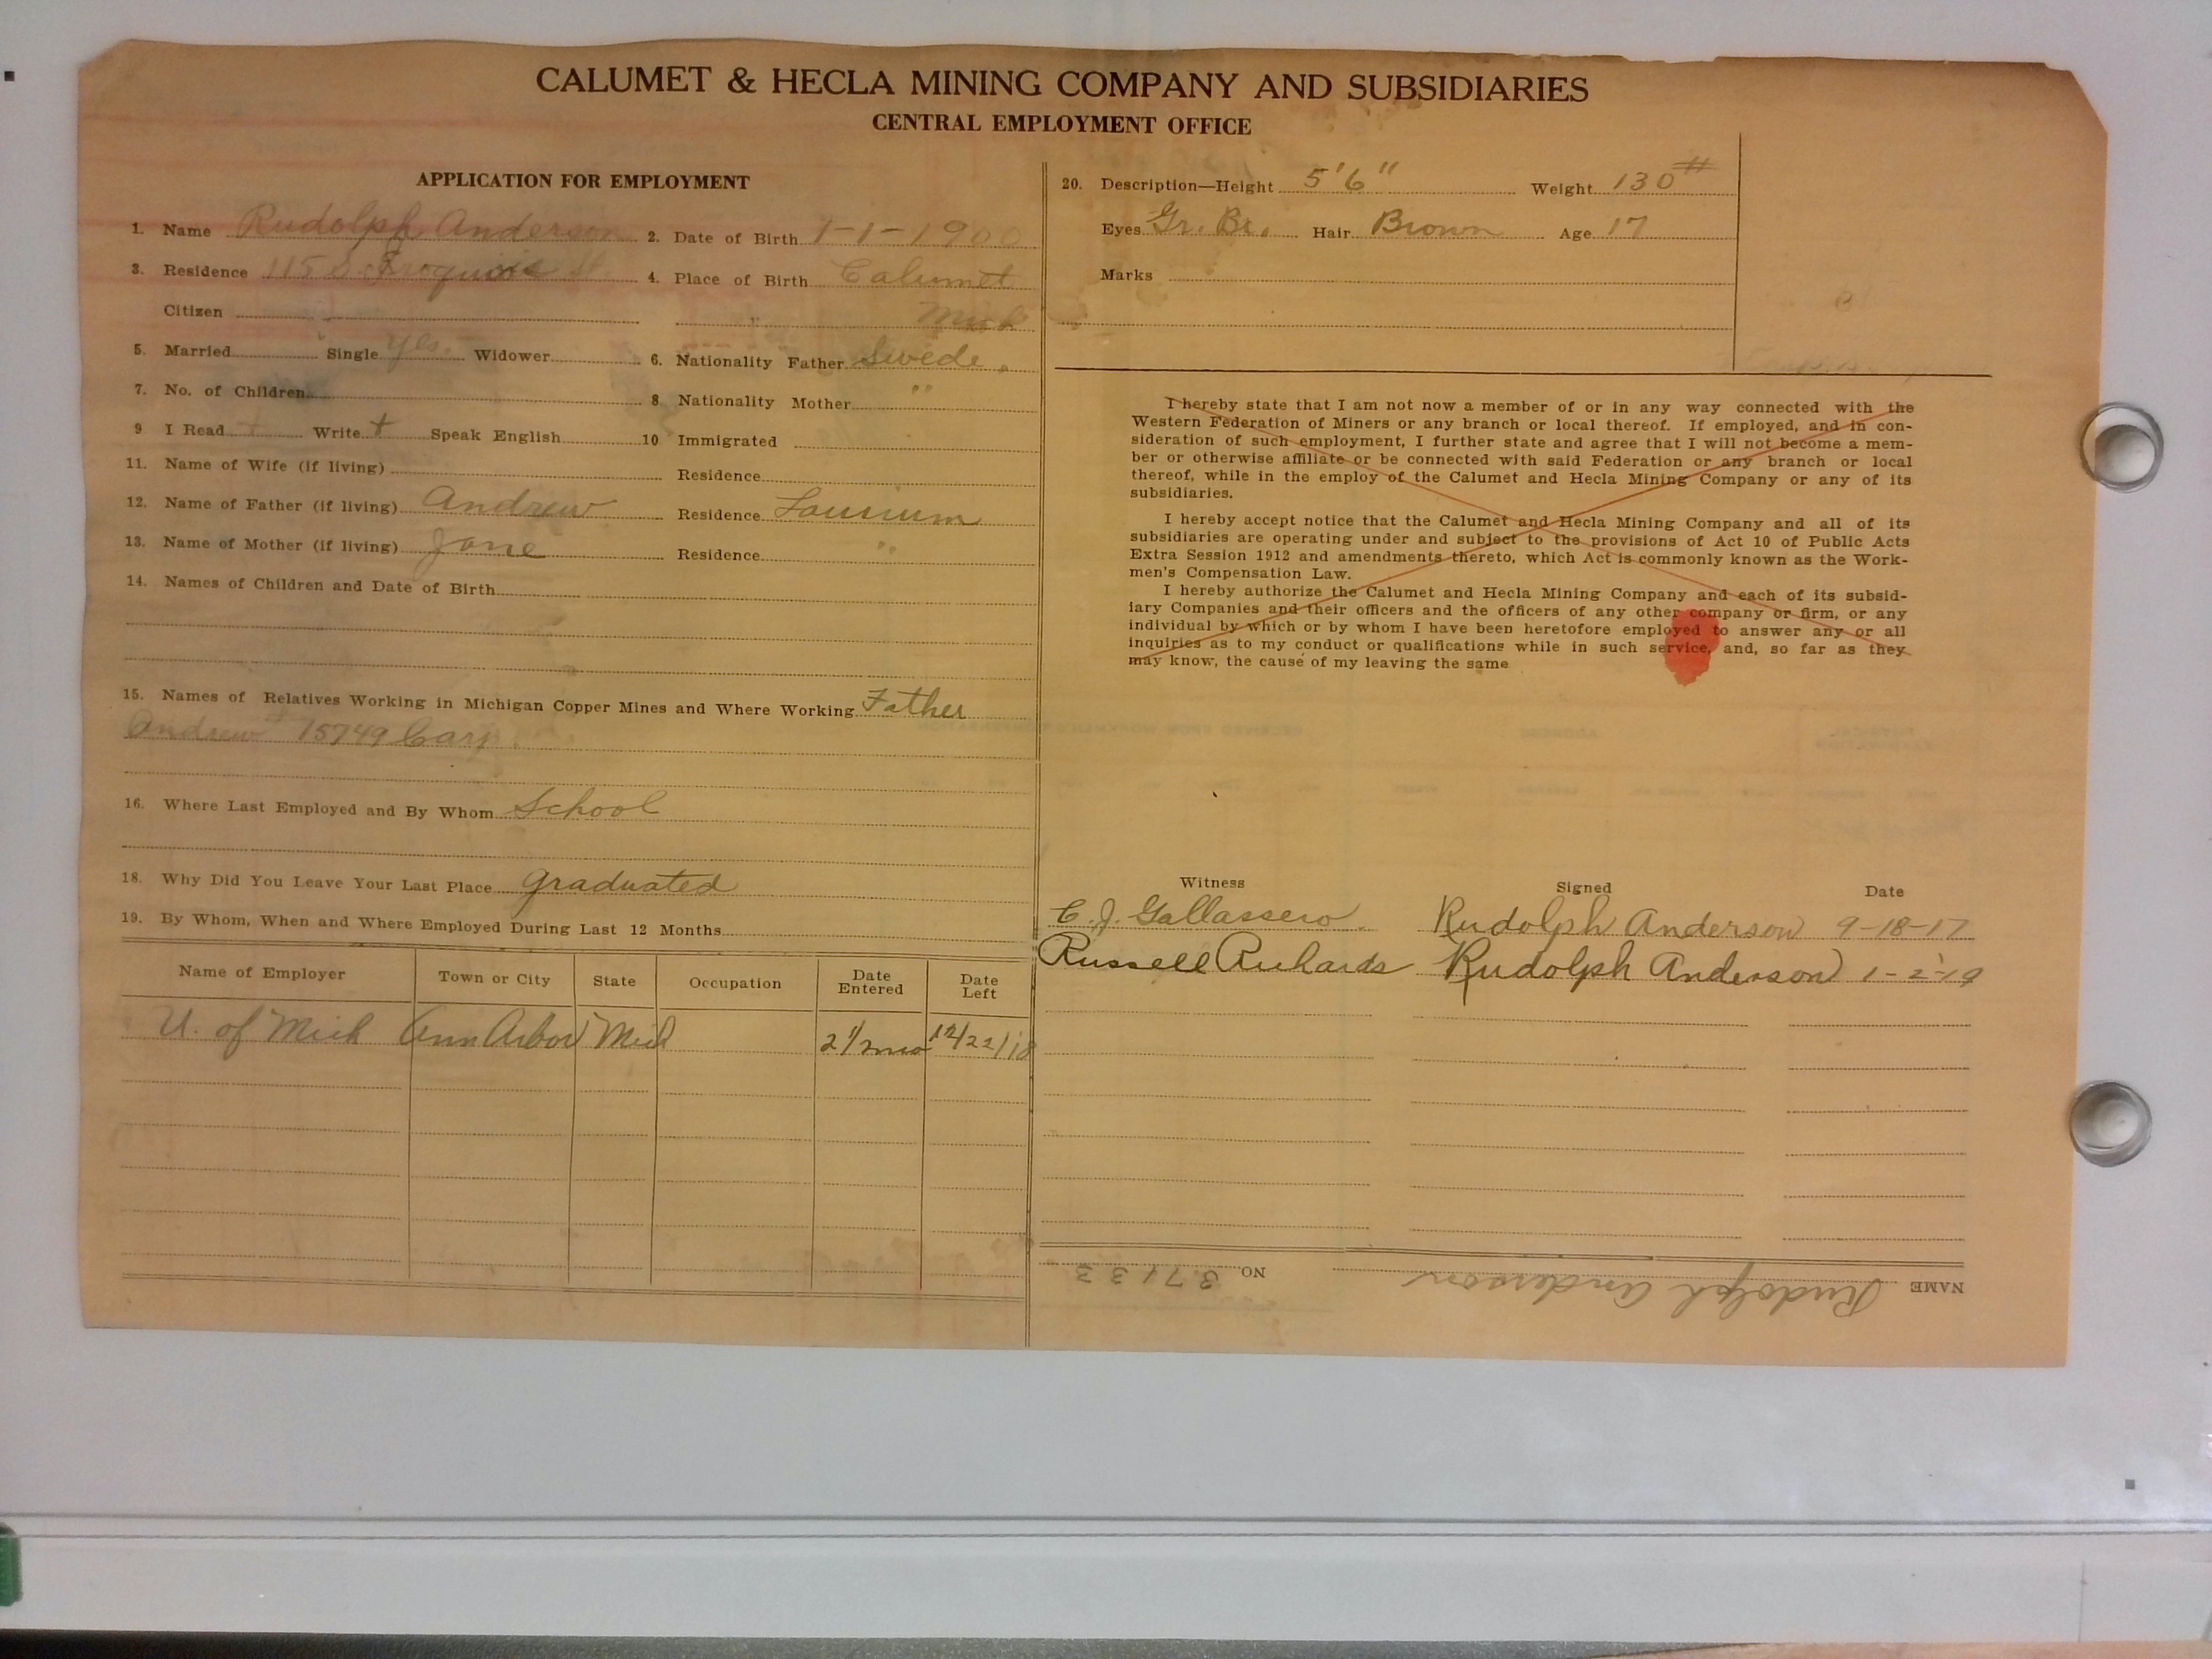 CALUMET & HECLA MINING COMPANY AND SUBSIDIARIES
CENTRAL EMPLOYMENT OFFICE
APPLICATION FOR EMPLOYMENT
1. Name Rudolph Anderson 2. Date of Birth 1-1-1900
3. Residence 115 S. Iroquois St. 4. Place of Birth Calumet
Citizen Mich
5. Married Single yes. Widower 6. Nationality Father Swede.
7. No. of Children 8. Nationality Mother " "
9 I Read + Write + Speak English 10 Immigrated
11. Name of Wife (if living) Residence
12. Name of Father (if living) Andrew Residence Laurium
13. Name of Mother (if living) Jane Residence " "
14. Names of Children and Date of Birth
15. Names of Relatives Working in Michigan Copper Mines and Where Working Father
Andrew # 15749 Carp.
16. Where Last Employed and By Whom School
18. Why Did You Leave Your Last Place graduated
19. By Whom, When and Where Employed During Last 12 Months
Name of Employer Town or City State Occupation Date Entered Date Left
U. of Mich Ann Arbor Mich 2 1/2 mo 12/22/18
20. Description—Height 5'6" Weight 130#
Eyes Gr. Br. Hair Brown Age 17
Marks
I hereby state that I am not now a member of or in any way connected with the
Western Federation of Miners or any branch or local thereof. If employed, and in con-
sideration of such employment, I further state and agree that I will not become a mem-
ber or otherwise affiliate or be connected with said Federation or any branch or local
thereof, while in the employ of the Calumet and Hecla Mining Company or any of its
subsidiaries.
I hereby accept notice that the Calumet and Hecla Mining Company and all of its
subsidiaries are operating under and subject to the provisions of Act 10 of Public Acts
Extra Session 1912 and amendments thereto, which Act is commonly known as the Work-
men's Compensation Law.
I hereby authorize the Calumet and Hecla Mining Company and each of its subsid-
iary Companies and their officers and the officers of any other company or firm, or any
individual by which or by whom I have been heretofore employed to answer any or all
inquiries as to my conduct or qualifications while in such service, and, so far as they
may know, the cause of my leaving the same
Witness Signed Date
C. J. Gallassero Rudolph Anderson 9-18-17
Russell Richards Rudolph Anderson 1-2-19
NAME Rudolph Anderson NO. 37133